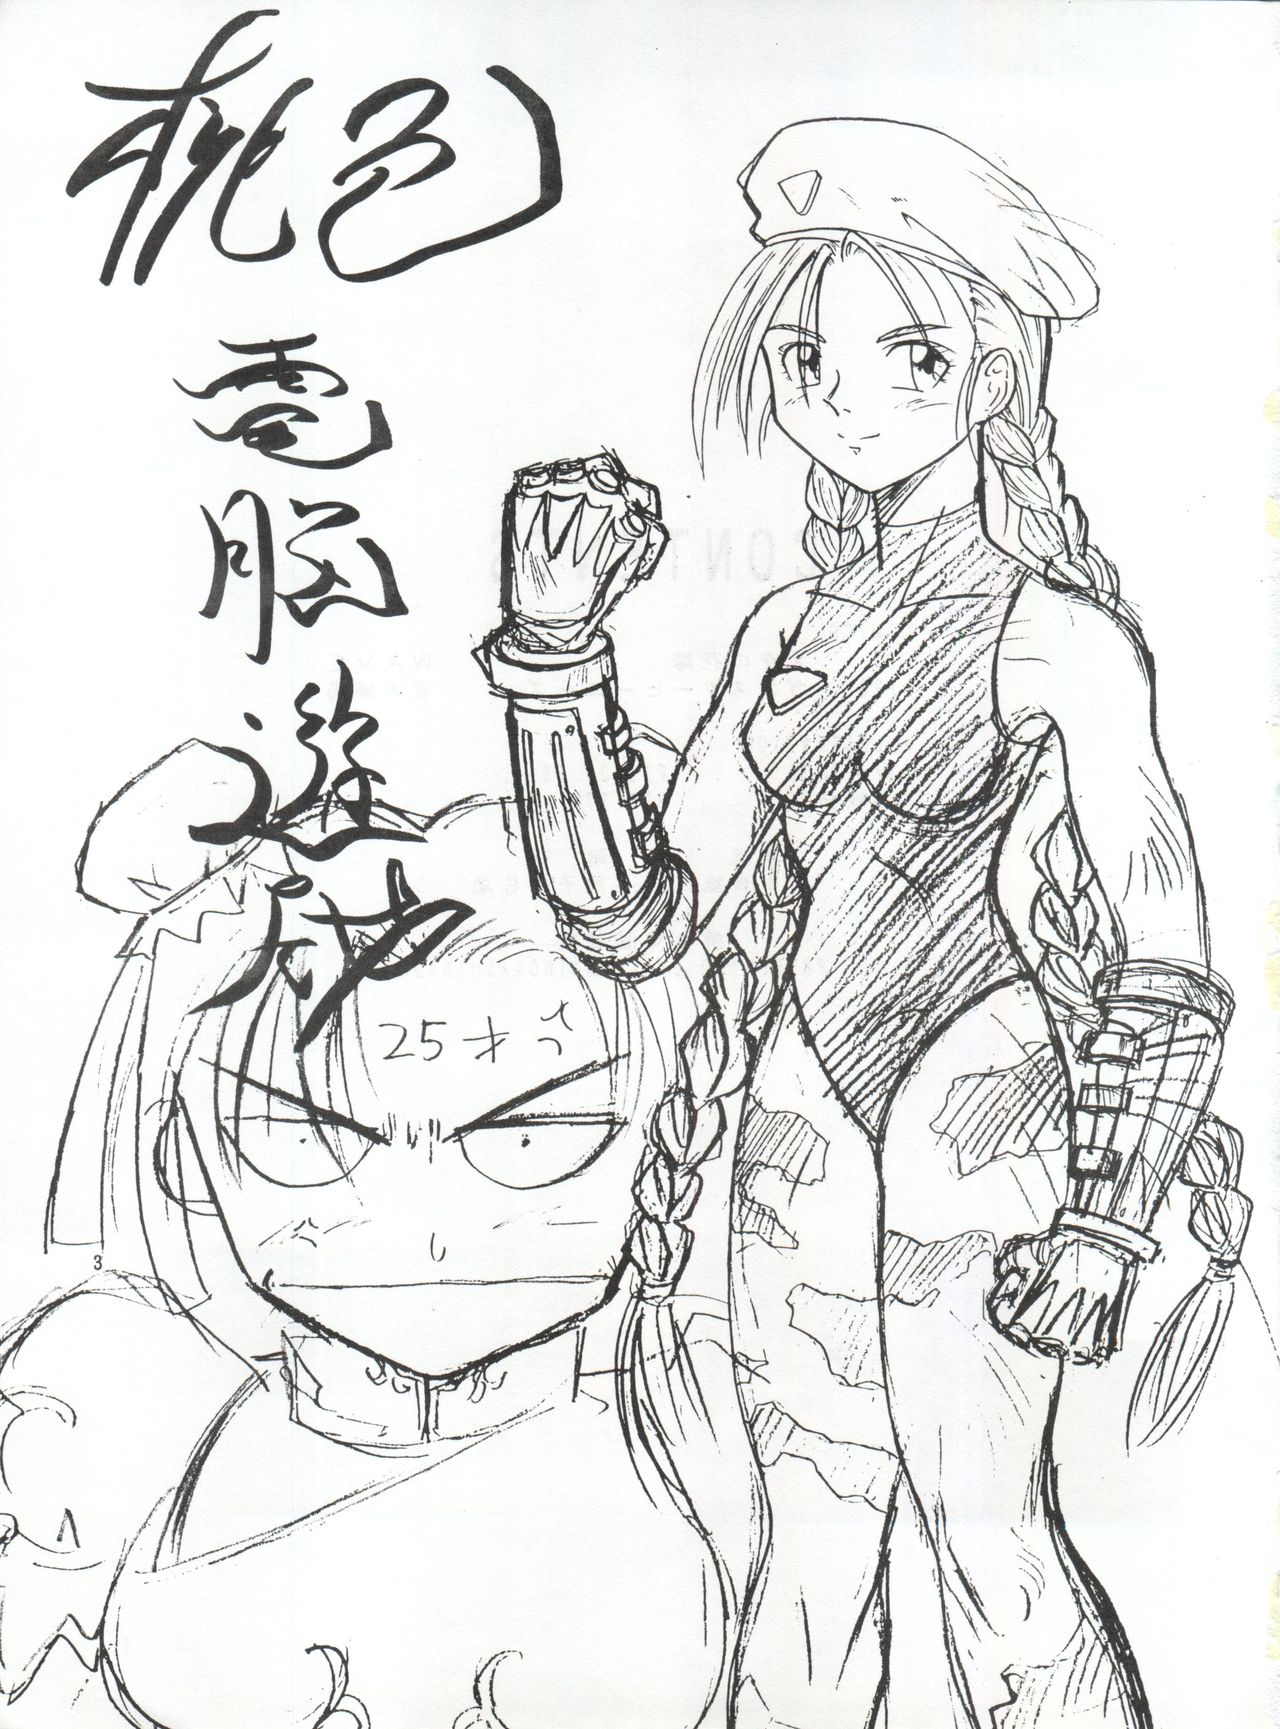 桃色
電脳遊戯
25才
3